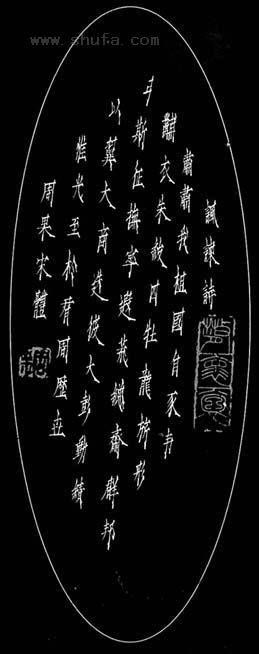 www.shufa.com
諷諫詩
肅肅我祖國自豕韋
黼衣朱黻四牡龍旂彤
弓斯征撫寧遐荒總齊群邦
以翼大商迭彼大彭勳績
惟光至於有周歷世
周果宋體